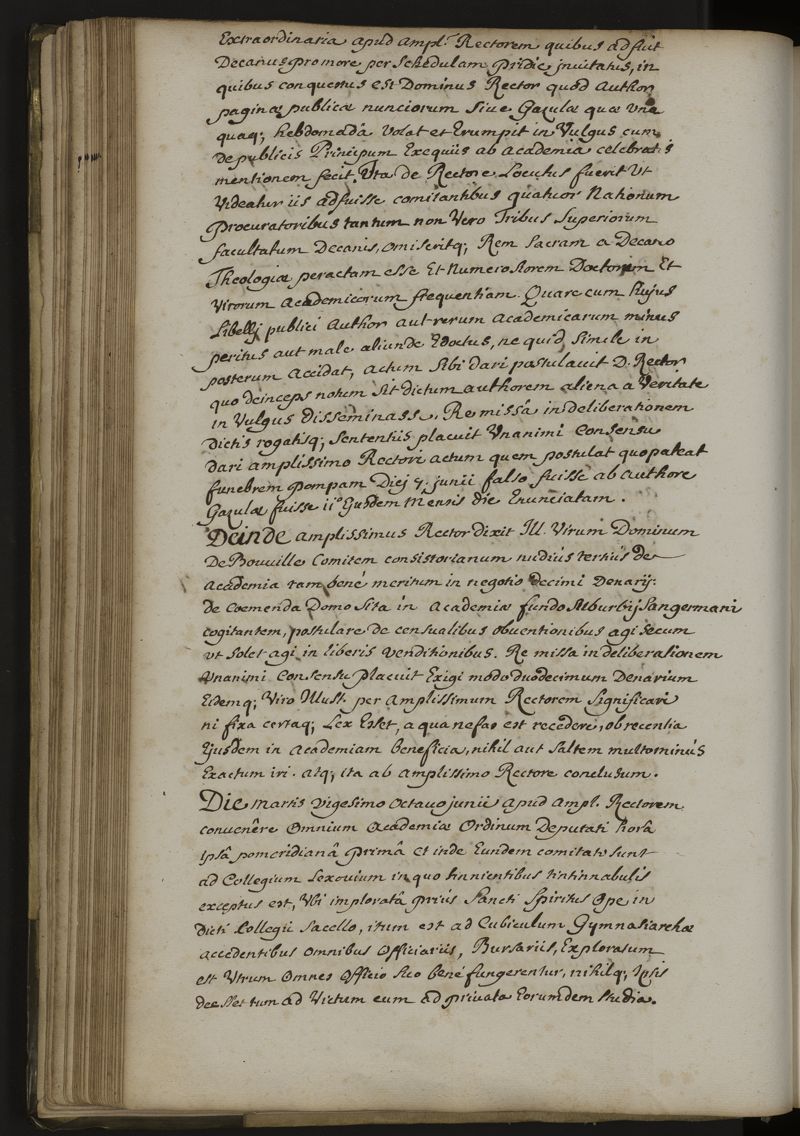 Extraordinaria apud Ampl. Rectorem quibus adfuit
Decanus pro more per Schedulam pridie invitatus, in
quibus conquestus est Dominus Rector quod Author
paginæ publicæ nunciorum sive Gazulæ quæ una
quaq; hebdomadâ Volat et Erumpit in Vulgus cum
de publicis Principum Exequiis ab Academia celebratis
mentionem fecit, Ita de Rectore Locutus fuerit Ut
Videatur iis adfuisse comitantibus quatuor Nationum
Procuratoribus tantum non Vero Tribus Superiorum
facultatum Decanis, omiseritq; Rem Sacram a Decano
Theologiæ peractam esse Et Numerosiorem Doctorum Et
Virorum Academicorum frequentiam. Quare cum hujus
Libelli publici Author aut rerum Academicarum minus
peritus aut male aliunde Edoctus, ne quid simile in
posterum Accidat, actum sibi dari postulavit D. Rector
quo deinceps notum sit dictum authorem aliena a Veritate
in Vulgus disseminasse. Re missâ in deliberationem
dictis rogatisq; sententiis placuit Unanimi Consensu
dari amplissimo Rectori actum quem postulat quo pateat
funebrem pompam Diei 7. junii falso fuisse ab Authore
Gazulæ fuisse 11º Ejusdem Mensis die Enunciatam.
Deinde Amplissimus Rector dixit Ill. Virum Dominum
De Bouville Comitem consistorianum nudiùs tertiùs de
Academia tam bené meritum in negotio decimi Denarij
de Coemenda Domo Sita in Academiæ fundo Suburbij Sangermani
cogitantem, postulare de censualibus obventionibus agi secum
ut solet agi in liberis venditionibus. Re missa in deliberationem
Unanimi Consensu Placuit Exigi modo duodecimum Denarium
Eidemq; Viro Illust. per Amplissimum Rectorem Significari
ni fixa certaq; Lex Esset, a qua nefas est recedere, ob recentia
Ejusdem in Academiam beneficia, nihil aut saltem multo minùs
Exactum iri. Atq; ita ab Amplissimo Rectore conclusum.
Die martis vigesimo octavo junii apud Ampl. Rectorem
convenêre Omnium Academiæ Ordinum Deputati horâ
ipsâ pomeridianâ primâ et inde Eundem comitati sunt
ad Collegium Lexovium in quo tinnientibus tintinnabulis
exceptus est, Ubi imploratâ priùs Sancti Spiritus Ope in
dicti Collegii Sacello, itum est ad Cubiculum Gymnasiarchæ
accedentibus omnibus Officiariis, Bursariis, Exploratum
est Utrum Omnes Officio suo bene fungerentur, nihilq; ipsis
deesset tum ad Victum cum ad privata Eorumdem studia.